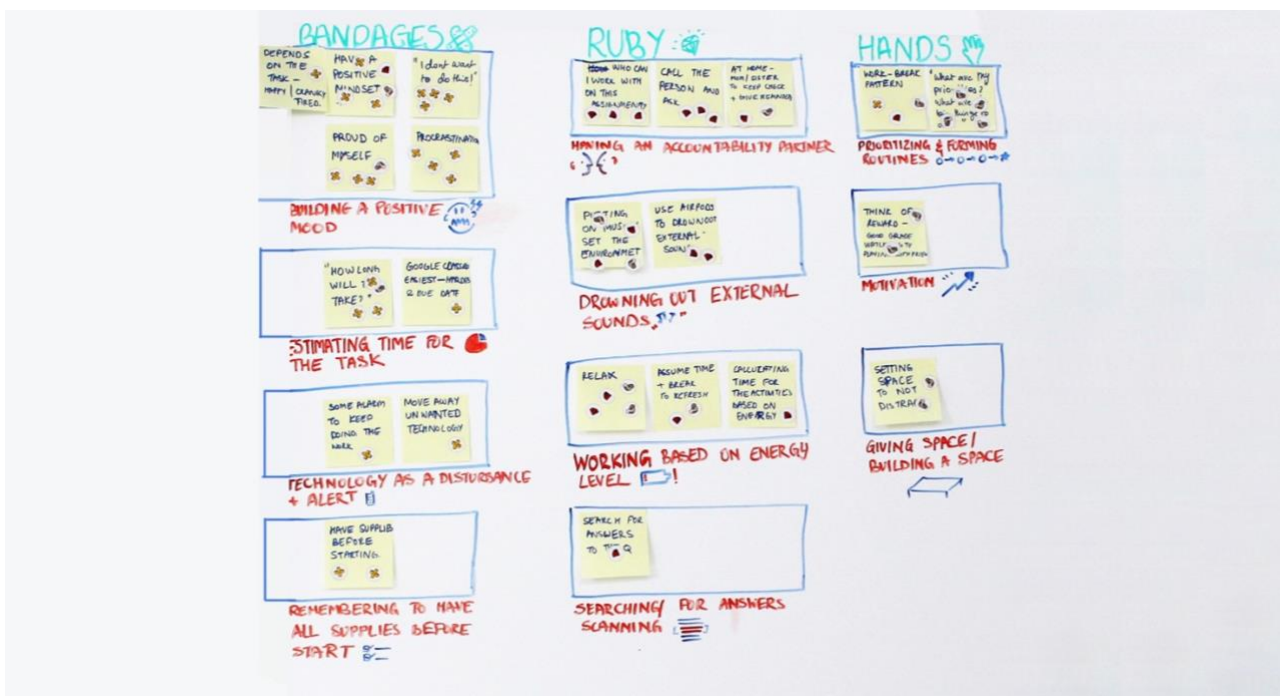 BANDAGES
DEPENDS
ON THE
TASK –
HAPPY / CRANKY
TIRED.
HAVE A
POSITIVE
MINDSET
"I dont want
to do this!"
PROUD OF
MYSELF
PROCRASTINATION
BUILDING A POSITIVE
MOOD
"HOW LONG
WILL IT
TAKE?"
GOOGLE
EASIEST – HARDEST
& DUE DATE
ESTIMATING TIME FOR
THE TASK
SOME ALARM
TO KEEP
DOING THE
WORK
MOVE AWAY
UNWANTED
TECHNOLOGY
TECHNOLOGY AS A DISTURBANCE
+ ALERT
HAVE SUPPLIES
BEFORE
STARTING
REMEMBERING TO HAVE
ALL SUPPLIES BEFORE
START
RUBY
WHO CAN
I WORK WITH
ON THIS
ASSIGNMENT?
CALL THE
PERSON AND
ASK
AT HOME –
MOM / SISTER
TO KEEP CHECK
+ GIVE REMINDER
HAVING AN ACCOUNTABILITY PARTNER
PUTTING
ON MUSIC
SET THE
ENVIRONMET
USE AIRPODS
TO DROWNOUT
EXTERNAL
SOUN
DROWNING OUT EXTERNAL
SOUNDS
RELAX
ASSUME TIME
+ BREAK
TO REFRESH
CALCULATING
TIME FOR
THE ACTIVITIES
BASED ON
ENERGY
WORKING BASED ON ENERGY
LEVEL !
SEARCH FOR
ANSWERS
TO THE Q
SEARCHING/ FOR ANSWERS
SCANNING
HANDS
WORK – BREAK
PATTERN
"What are my
priorities?
What are
things to
PRIORITIZING & FORMING
ROUTINES
THINK OF
REWARD –
GOOD GRADE
MOTIVATION
SETTING
SPACE
TO NOT
DISTRACT
GIVING SPACE/
BUILDING A SPACE